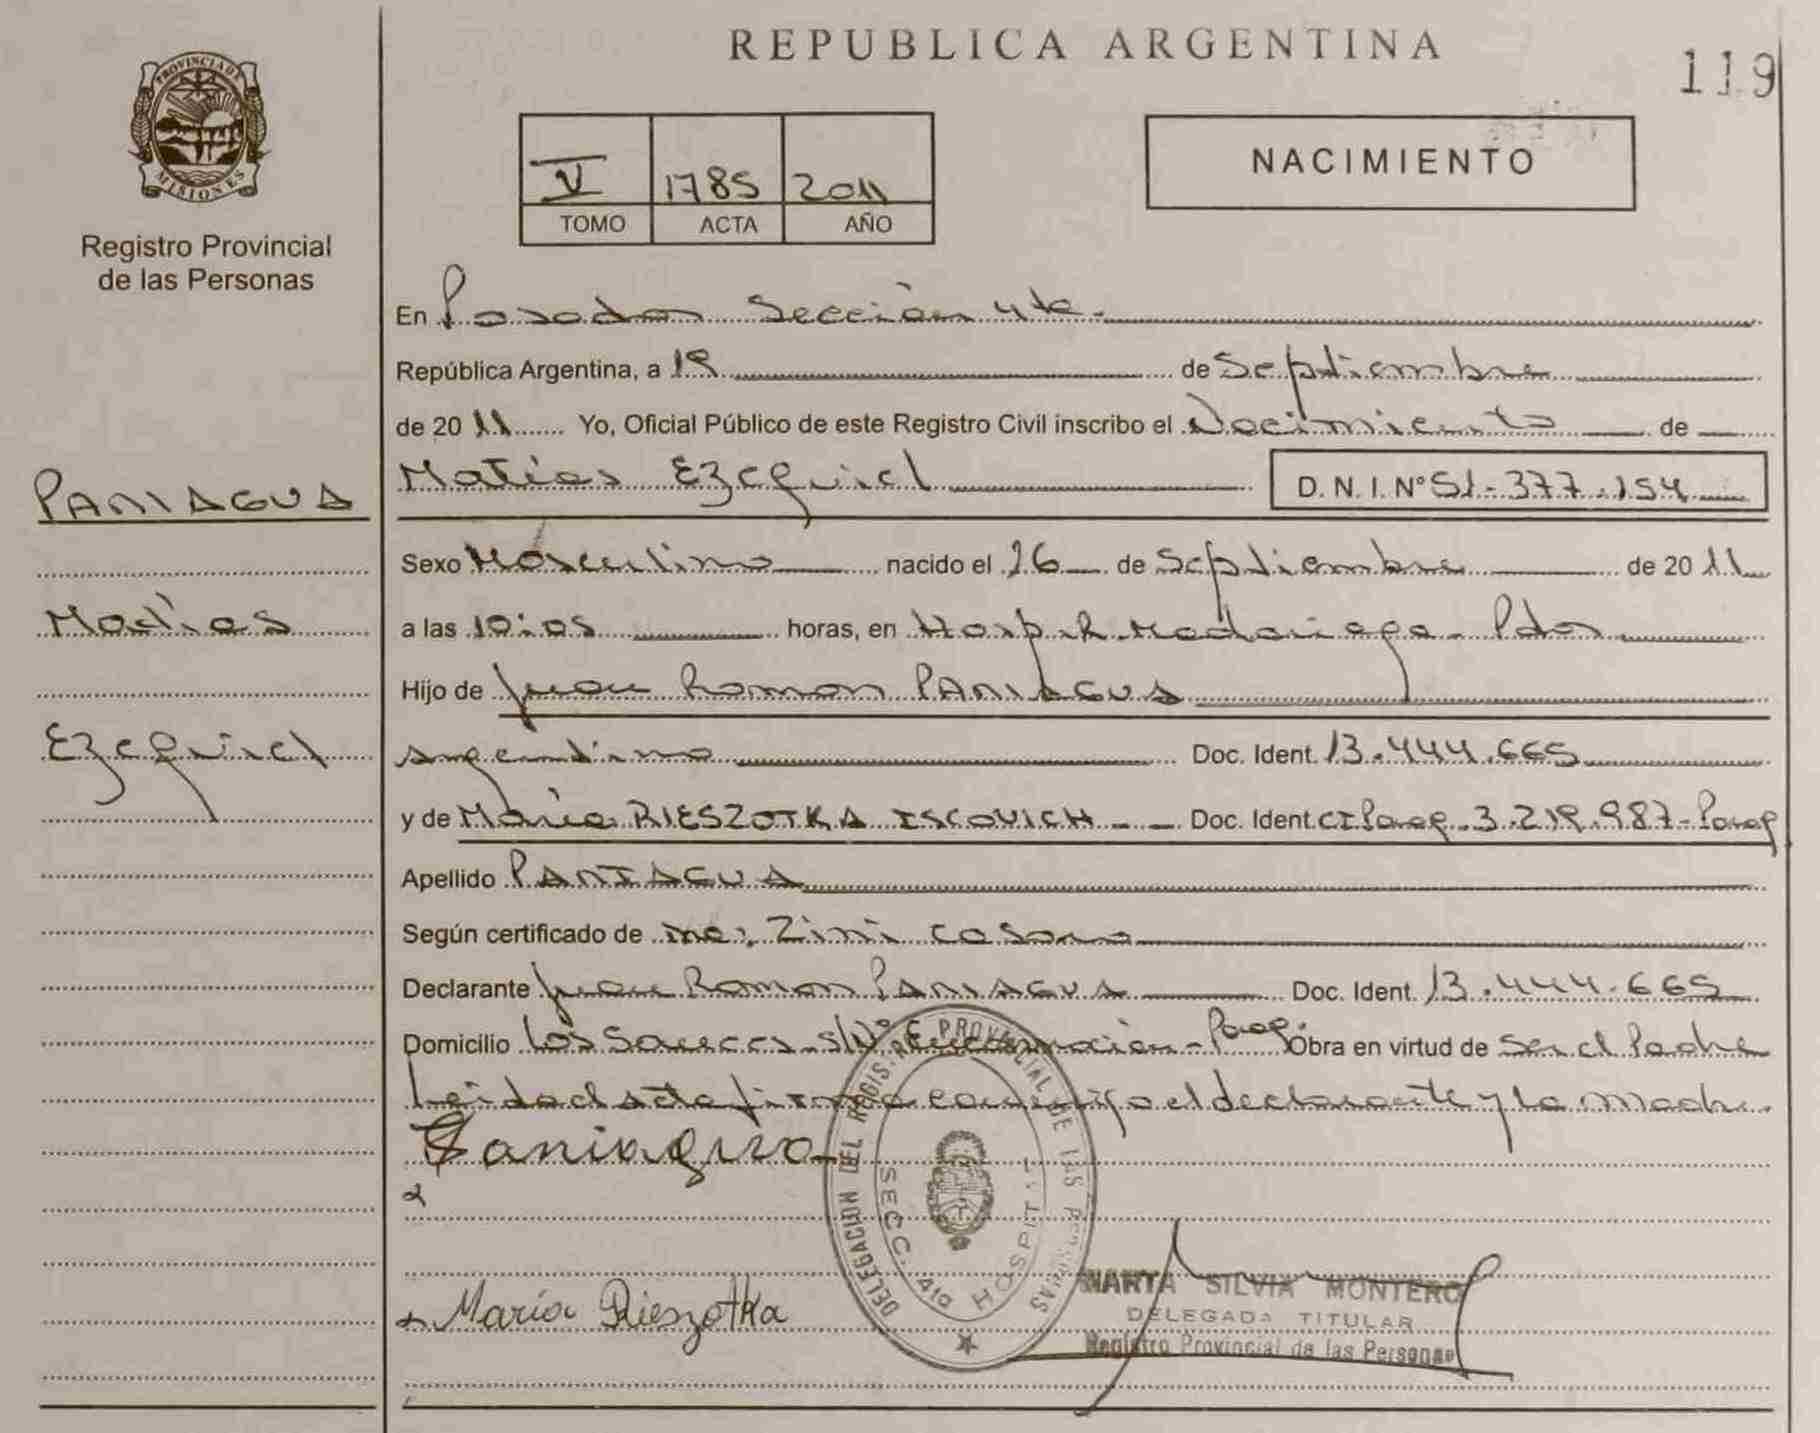 REPUBLICA ARGENTINA
119
PROVINCIA DE
MISIONES
Registro Provincial
de las Personas
V 1785 2011
TOMO ACTA AÑO
NACIMIENTO
En Posadas Sección 4ta.
República Argentina, a 19 de Septiembre
de 2011 Yo, Oficial Público de este Registro Civil inscribo el Nacimiento de
PANIAGUA
Matías Ezequiel D.N.I. Nº 51.377.154
Sexo Masculino nacido el 16 de Septiembre de 2011
Matías
a las 10:05 horas, en Hosp. R. Madariaga - Pdas
Hijo de Juan Ramon PANIAGUA
Ezequiel
Argentino Doc. Ident. 13.444.665
y de María RIESZOTKA ISCOVICH Doc. Ident. CI Parag. 3.219.987 - Parag
Apellido PANIAGUA
Según certificado de Zini
Declarante Juan Ramon PANIAGUA Doc. Ident. 13.444.665
Domicilio Los Sauces S/Nº Encarnación - Parag. Obra en virtud de Ser el Padre
Leida el acta firma conmigo el declarante y la Madre.
Paniagua
María Rieszotka
DELEGACION DEL REGISTRO PROVINCIAL DE LAS PERSONAS
SECC. 4ta HOSPITAL
MARTA SILVIA MONTERO
DELEGADA TITULAR
Registro Provincial de las Personas